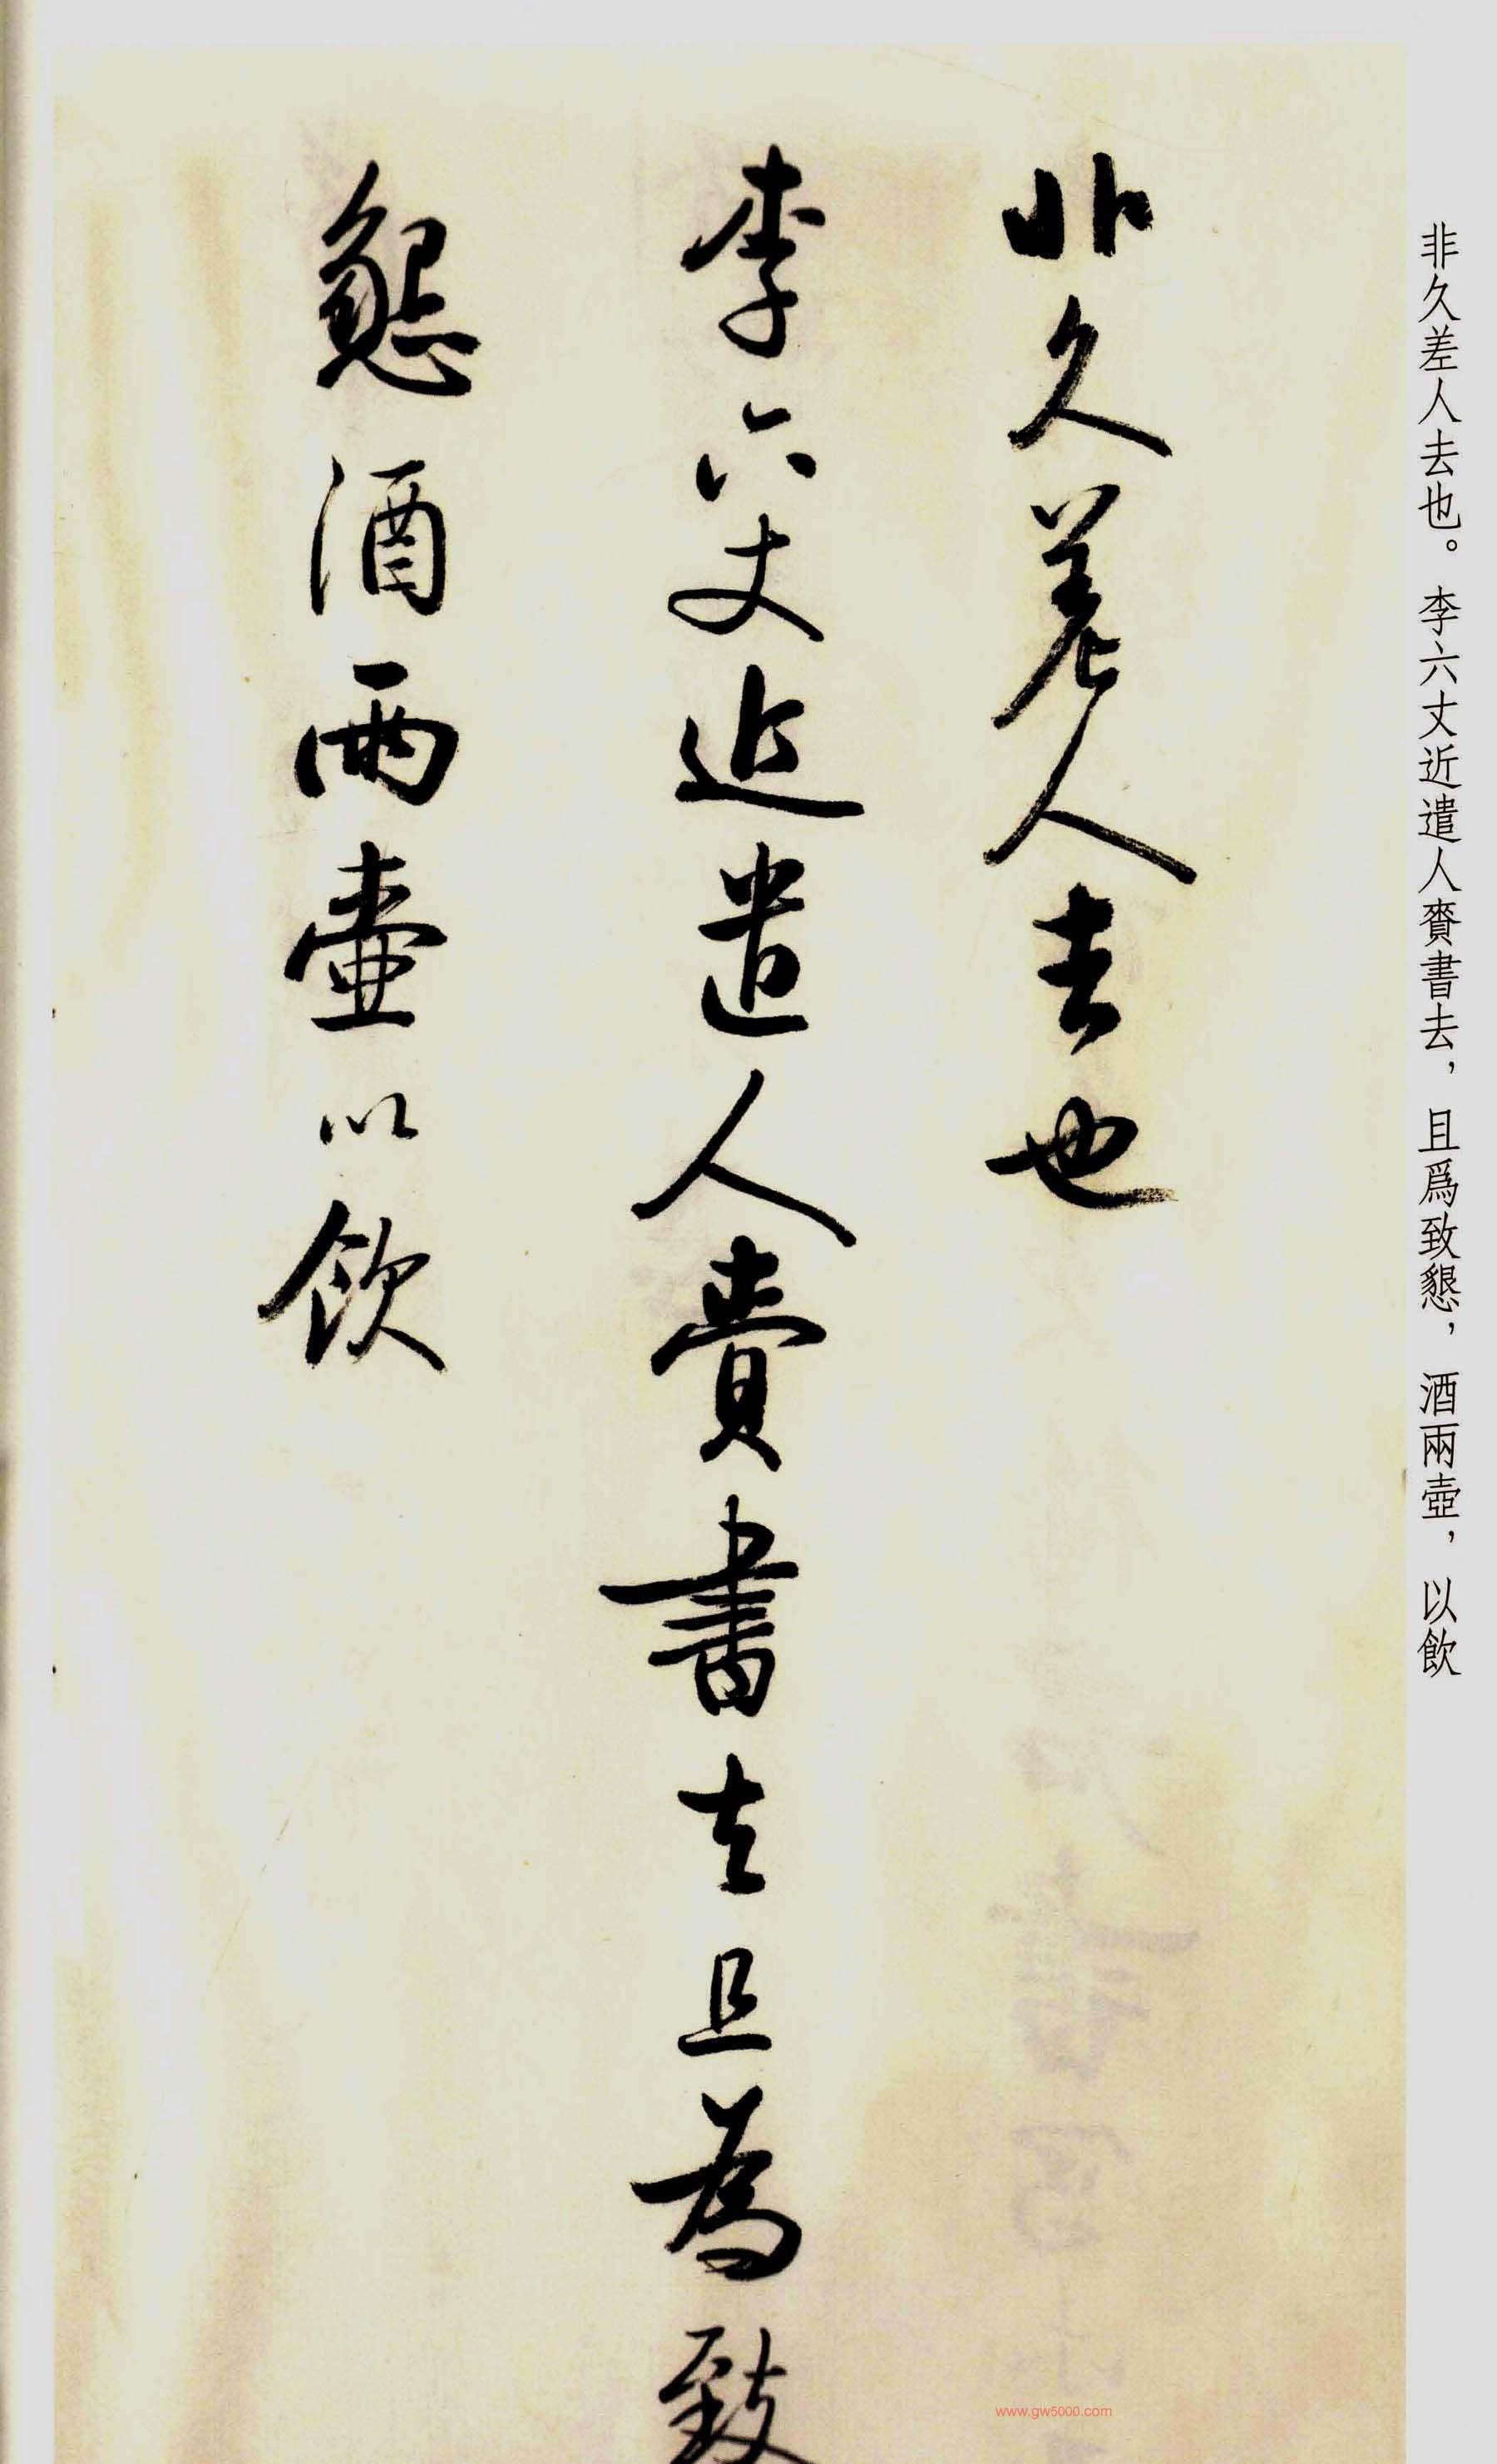 非久差人去也。李六丈近遣人賫書去，且爲致懇，酒兩壺，以飲
非久差人去也
李六丈近遣人賫書去且為致
懇酒兩壺以飲
www.gw5000.com